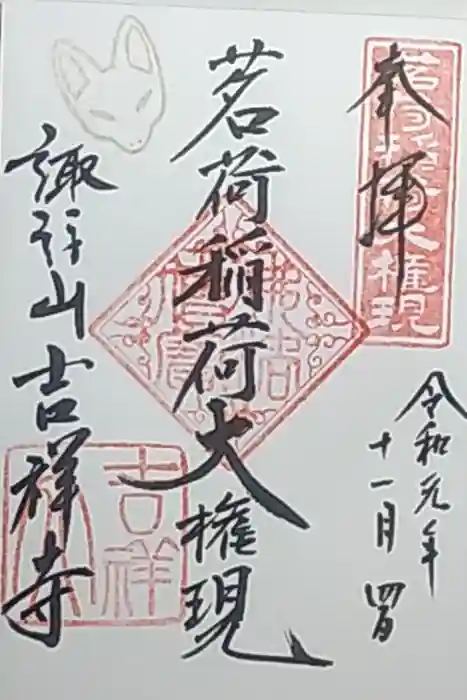 奉拝
茗荷稲荷大権現
令和元年
十一月四日
茗荷稲荷大権現
諏訪山吉祥寺
吉祥